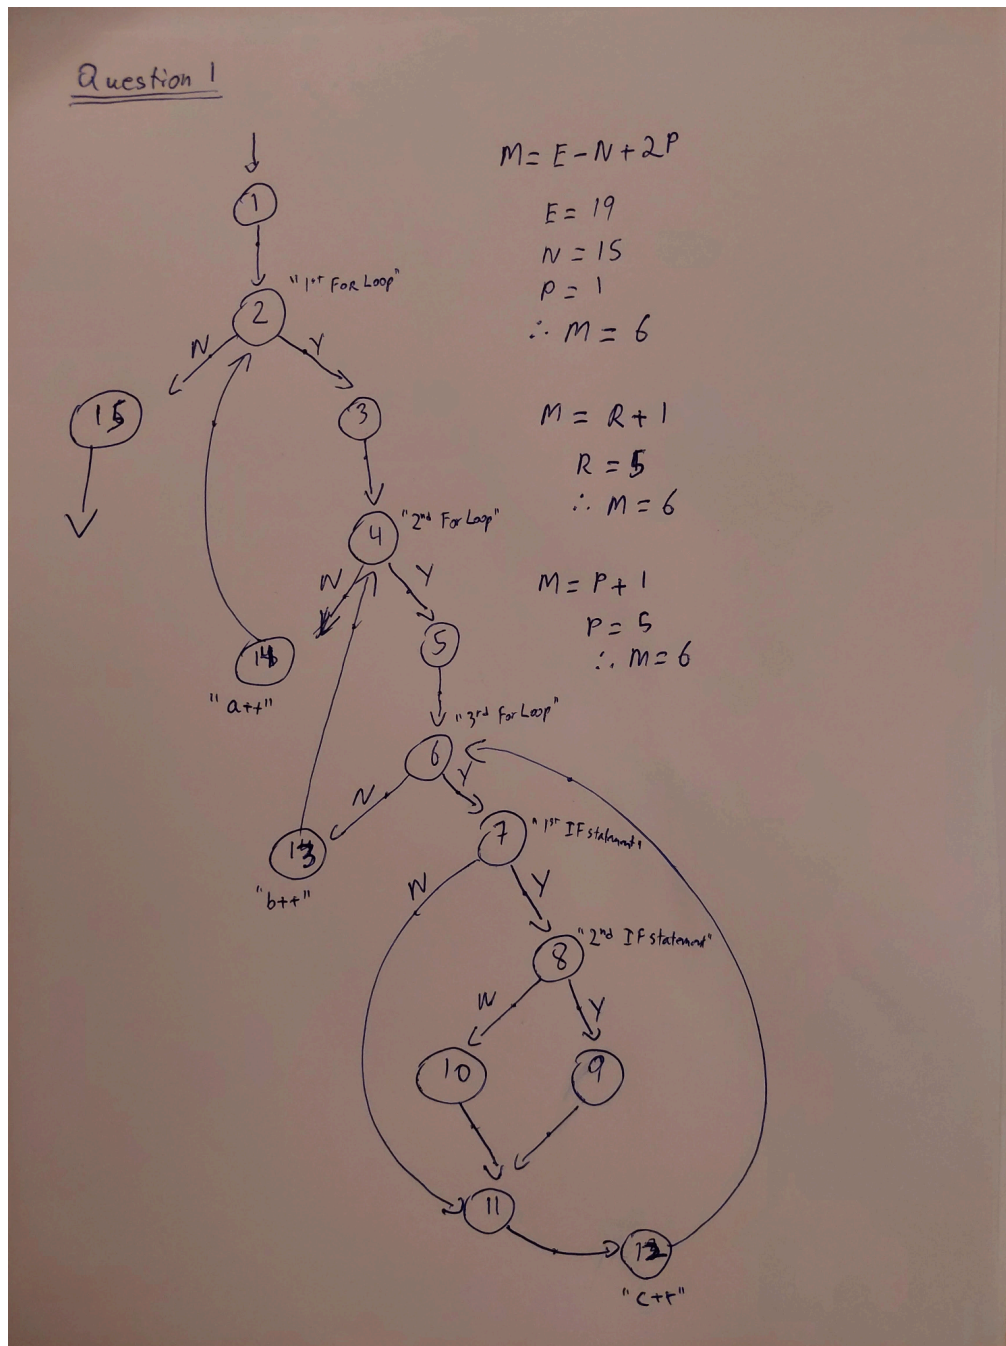 Question 1
M = E - N + 2P
E = 19
N = 15
P = 1
∴ M = 6
M = R + 1
R = 5
∴ M = 6
M = P + 1
P = 5
∴ M = 6
1
2
"1st For Loop"
N
Y
15
3
4
"2nd For Loop"
N
Y
14
"a++"
5
6
"3rd For Loop"
N
Y
13
"b++"
7
"1st IF statement"
N
Y
8
"2nd IF statement"
N
Y
10
9
11
12
"c++"